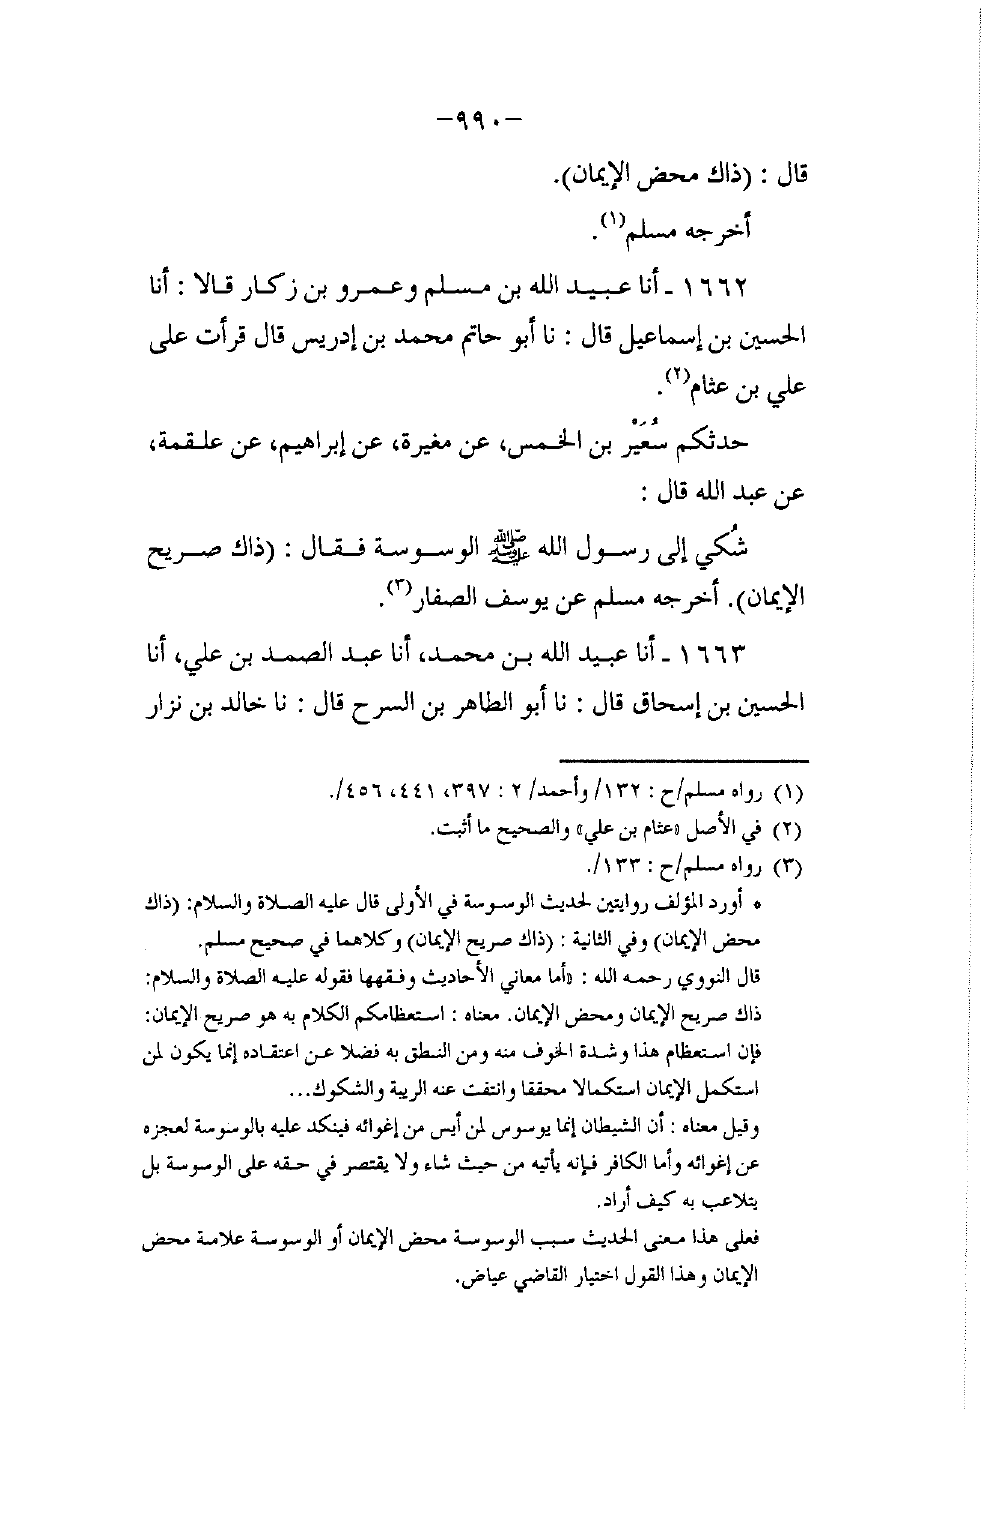 -٩٩٠-
قال : (ذاك محض الإيمان).
أخرجه مسلم(١).
١٦٦٢ ـ أنا عبيد الله بن مسلم وعمرو بن زكار قالا : أنا
الحسين بن إسماعيل قال : نا أبو حاتم محمد بن إدريس قال قرأت على
علي بن عثام(٢).
حدثكم سُعَيْر بن الخمس، عن مغيرة، عن إبراهيم، عن علقمة،
عن عبد الله قال :
شُكي إلى رسول الله ﷺ الوسوسة فقال : (ذاك صريح
الإيمان). أخرجه مسلم عن يوسف الصفار(٣).
١٦٦٣ ـ أنا عبيد الله بن محمد، أنا عبد الصمد بن علي، أنا
الحسين بن إسحاق قال : نا أبو الطاهر بن السرح قال : نا خالد بن نزار
(١) رواه مسلم/ح : ١٣٢/ وأحمد/ ٢ : ٣٩٧، ٤٤١، ٤٥٦/.
(٢) في الأصل «عثام بن علي» والصحيح ما أثبت.
(٣) رواه مسلم/ح : ١٣٣/.
* أورد المؤلف روايتين لحديث الوسوسة في الأولى قال عليه الصلاة والسلام: (ذاك
محض الإيمان) وفي الثانية : (ذاك صريح الإيمان) وكلاهما في صحيح مسلم.
قال النووي رحمه الله : «أما معاني الأحاديث وفقهها فقوله عليه الصلاة والسلام:
ذاك صريح الإيمان ومحض الإيمان. معناه : استعظامكم الكلام به هو صريح الإيمان:
فإن استعظام هذا وشدة الخوف منه ومن النطق به فضلا عن اعتقاده إنما يكون لمن
استكمل الإيمان استكمالا محققا وانتفت عنه الريبة والشكوك...
وقيل معناه : أن الشيطان إنما يوسوس لمن أيس من إغوائه فينكد عليه بالوسوسة لعجزه
عن إغوائه وأما الكافر فإنه يأتيه من حيث شاء ولا يقتصر في حقه على الوسوسة بل
يتلاعب به كيف أراد.
فعلى هذا معنى الحديث سبب الوسوسة محض الإيمان أو الوسوسة علامة محض
الإيمان وهذا القول اختيار القاضي عياض.